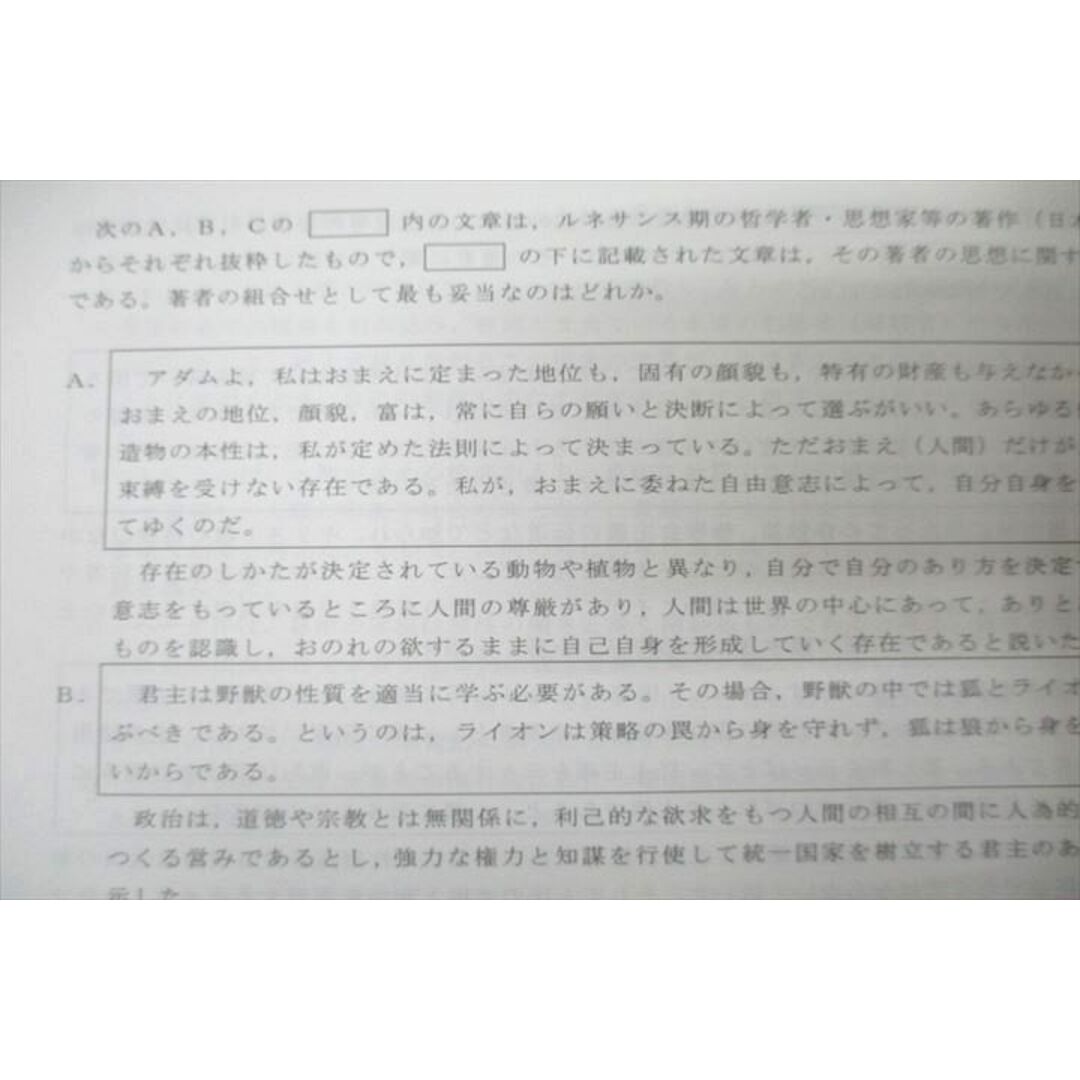 次のA，B，Cの 内の文章は，ルネサンス期の哲学者・思想家等の著作（日
からそれぞれ抜粋したもので， の下に記載された文章は，その著者の思想に関す
である。著者の組合せとして最も妥当なのはどれか。
A． アダムよ，私はおまえに定まった地位も，固有の顔貌も，特有の財産も与えなか
おまえの地位，顔貌，富は，常に自らの願いと決断によって選ぶがいい。あらゆる
造物の本性は，私が定めた法則によって決まっている。ただおまえ（人間）だけが
束縛を受けない存在である。私が，おまえに委ねた自由意志によって，自分自身を
てゆくのだ。
存在のしかたが決定されている動物や植物と異なり，自分で自分のあり方を決定
意志をもっているところに人間の尊厳があり，人間は世界の中心にあって，ありと
ものを認識し，おのれの欲するままに自己自身を形成していく存在であると説いた
B． 君主は野獣の性質を適当に学ぶ必要がある。その場合，野獣の中では狐とライオ
ぶべきである。というのは，ライオンは策略の罠から身を守れず，狐は狼から身を
いからである。
政治は，道徳や宗教とは無関係に，利己的な欲求をもつ人間の相互の間に人為的
つくる営みであるとし，強力な権力と知謀を行使して統一国家を樹立する君主のあ
示した